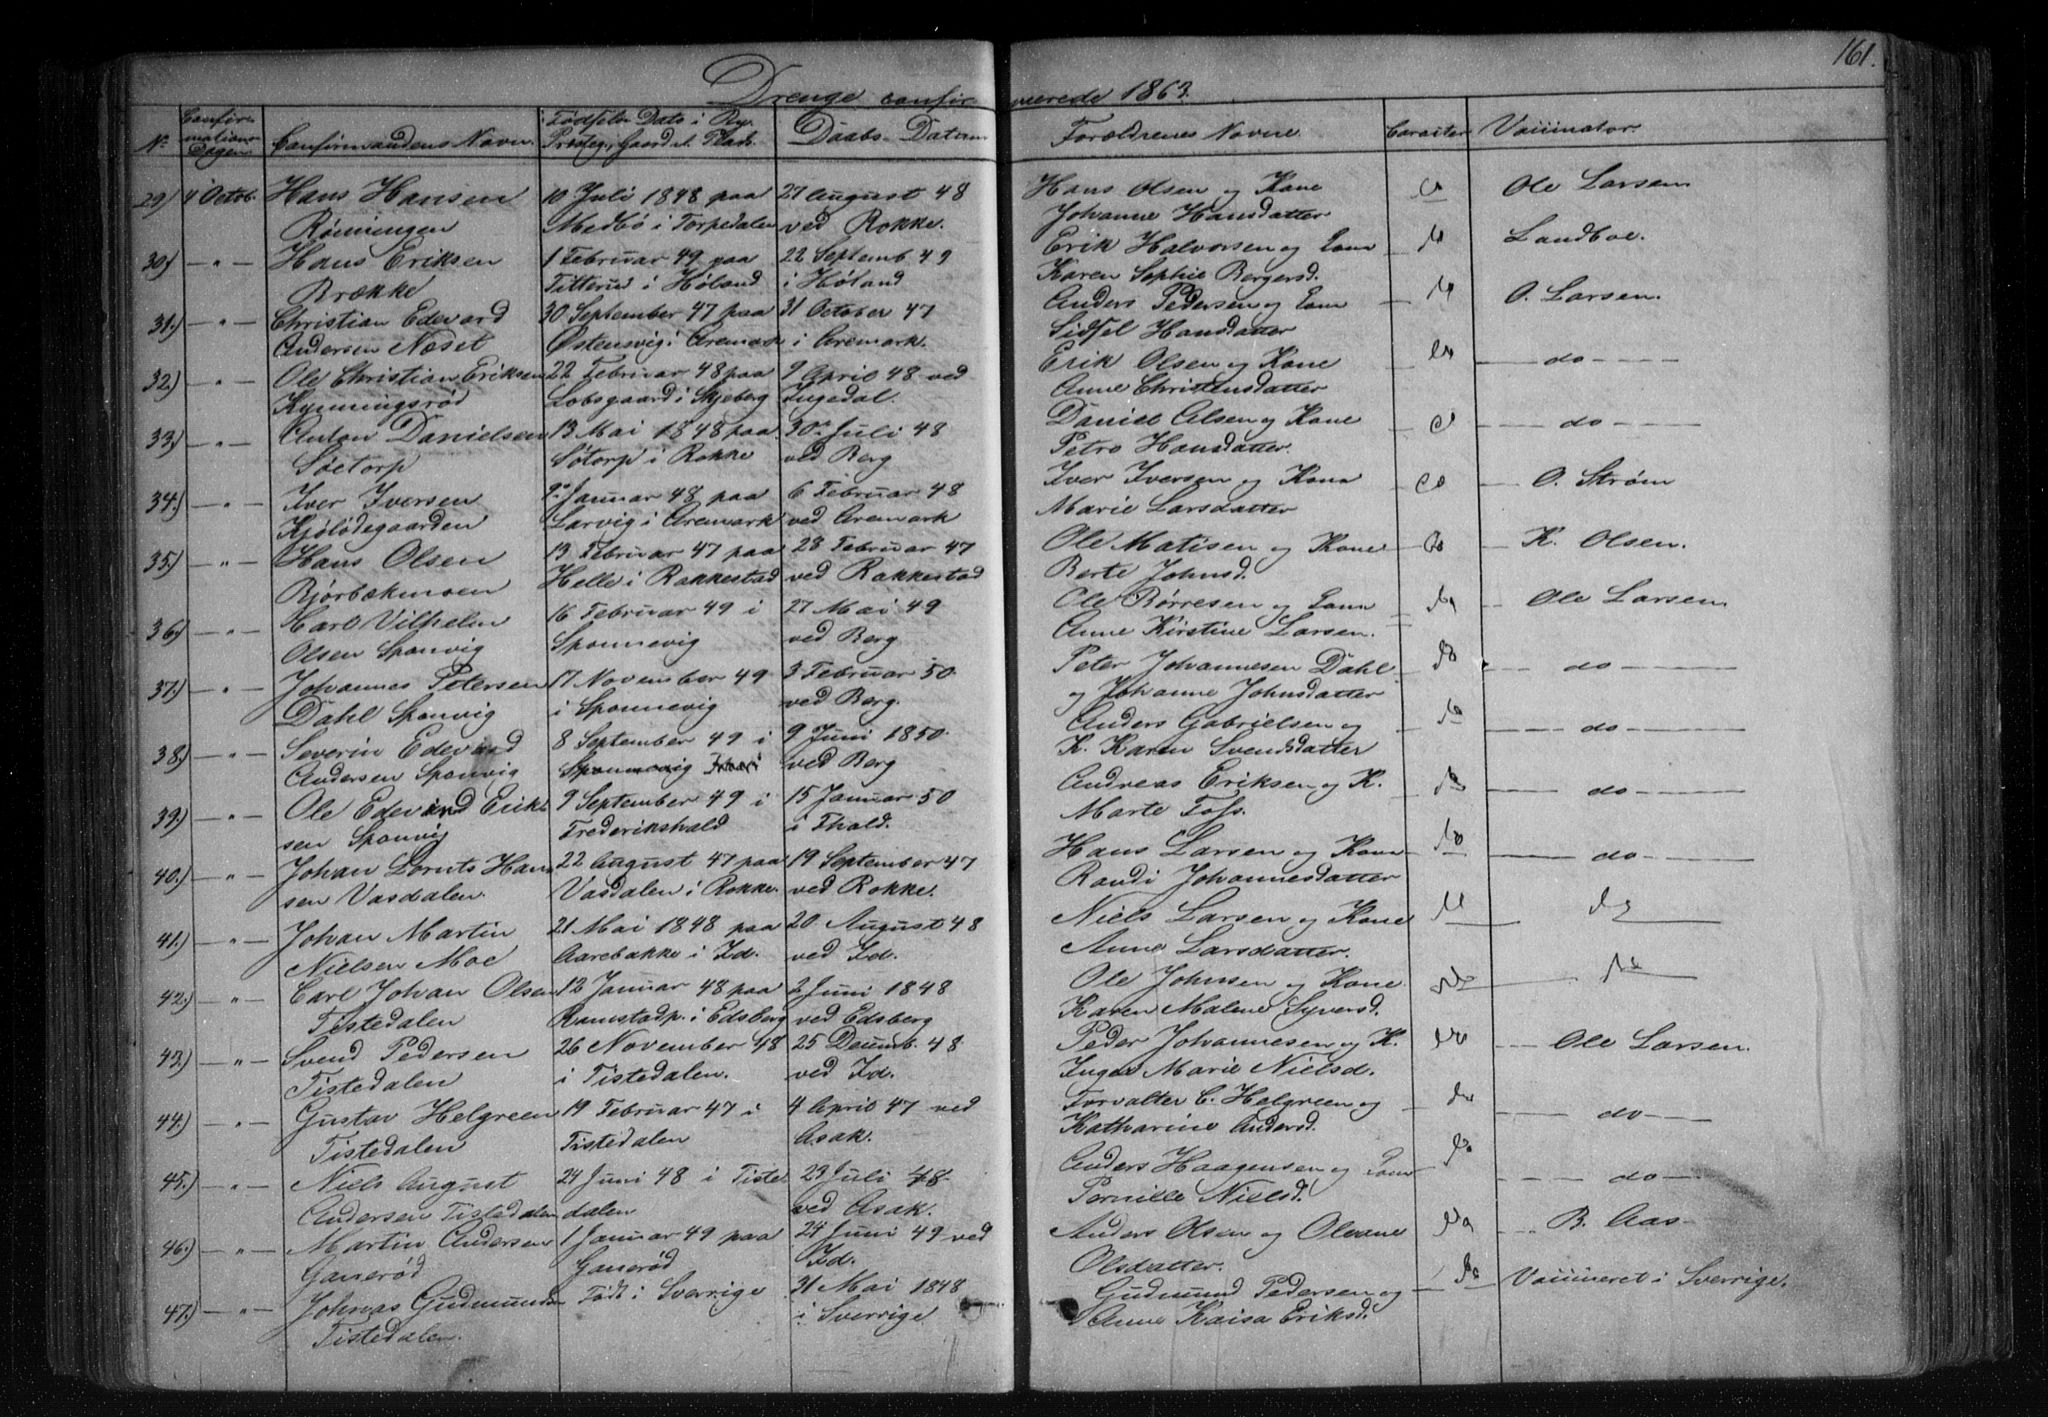 161.
Drenge confirmerede 1863.
No Confirmations Dagen Confirmandens Navn. Fødsels Dato i Præsteg., Gaard el. Plads. Daabs-Datum Forældrenes Navne. Caracter Vaccinator.
29) 4 Octob. Hans Hansen 10 Juli 1848 paa 27 August 48 Hans Olsen og Kone Ole Larsen
Rønningen Medbø i Torpedalen ved Rokke. Johanne Hansdatter
30) -"- Hans Eriksen 1 Februar 49 paa 22 Septemb. 49 Erik Halvorsen og Landboe.
Brække Titterud i Høland i Høland Karen Sophie Bergersd.
31.) -"- Christian Edevard 30 September 47 paa 31 October 47 Anders Pedersen og O. Larsen.
Andersen Næset Østensvig i Aremark i Aremark. Sidsel Hansdatter
32.) -"- Ole Christian Eriksen 22 Februar 48 paa 9 April 48 ved Erik Olsen og Kone — do —
Kynningsrød Lobsgaard i Skjeberg Ingedal. Anne Christensdatter
33.) -"- Anton Danielsen 13 Mai 1848 paa 30 Juli 48 Daniel Olsen og Kone — do —
Søetorp Søtorp i Rokke ved Berg Petro Hansdatter.
34.) -"- Iver Iversen 9 Januar 48 paa 6 Februar 48 Iver Iversen og Kone — O. Strøm
Kjølødegaarden Larvig i Aremark ved Aremark Marie Larsdatter
35.) -"- Hans Olsen 13 Februar 47 paa 28 Februar 47 Ole Matisen og Kone — K. Olsen.
Bjørbækmoen Helle i Rakkestad ved Rakkestad Berte Johnsd.
36.) -"- Karl Vilhelm 16 Februar 49 i 27 Mai 49 Ole Børresen og — Ole Larsen
Olsen Sponvig Sponnevig ved Berg Anne Kirstine Larsen.
37.) -"- Johannes Petersen 17 November 49 3 Februar 50 Peter Johannesen Dahl — do —
Dahl Sponvig i Sponnevig ved Berg. og Johanne Johnsdatter
38.) -"- Severin Edevard 8 September 49 i 9 Juni 1850 Anders Gabrielsen og — do —
Andersen Sponvig Sponnevig ved Berg K. Karen Svendsdatter
39.) -"- Ole Edevard Erik 9 September 49 i 15 Januar 50 Andreas Eriksen og K. — do —
sen Sponvig Frederikshald i Fhald. Marte Tofs.
40.) -"- Johan Lornts Han 22 August 47 paa 19 September 47 Hans Larsen og Kone — do —
sen Vasdalen. Vasdalen i Rokke. ved Rokke. Randi Johannesdatter
41.) -"- Johan Martin 21 Mai 1848 paa 20 August 48 Niels Larsen og Kone
Nielsen Moe Aarebakke i Id. ved Id. Anne Larsdatter.
42.) -"- Carl Johan Olsen 12 Januar 48 paa 2 Juni 1848 Ole Johnsen og Kone
Tistedalen Ramstadp. i Edsberg ved Edsberg Karen Malene Syversd.
43.) -"- Svend Pedersen 26 November 48 25 Decemb. 48 Peder Johannesen og K. — Ole Larsen.
Tistedalen i Tistedalen. ved Id. Inger Marie Nielsd.
44.) -"- Gustav Helgreen 19 Februar 47 i 4 April 47 ved Forvalter C. Helgreen og — do —
Tistedalen Tistedalen Asak. Katharine Andersd.
45.) -"- Niels August 24 Juni 48 i Tiste 29 Juli 48 Anders Haagensen og — do —
Andersen Tistedalen dalen ved Asak. Pernille Nielsd.
46.) -"- Martin Andersen 1 Januar 49 paa 24 Juni 49 ved Anders Olsen og Oleane B. Aas
Ganerød Ganerød Id. Olsdatter.
47.) -"- Johnas Gudmunds Født i Sverrige 31 Mai 1848 Gudmund Pedersen og — Vaccineret i Sverrige.
Tistedalen. i Sverrige Anne Kaisa Eriksd.